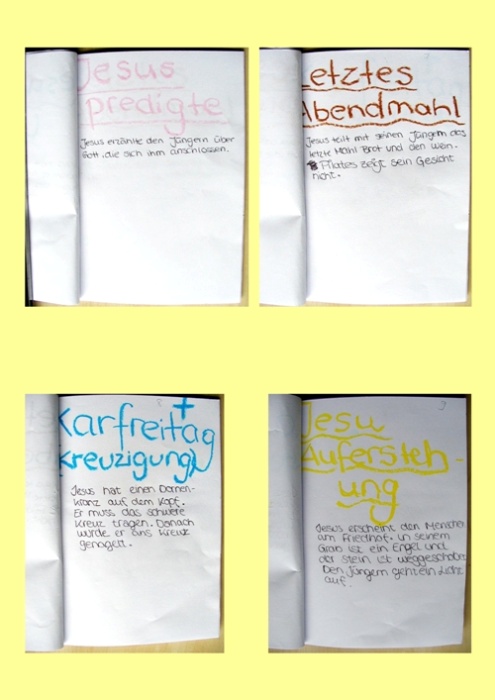 Jesus
predigte
Jesus erzählte den Jüngern über
Gott, die sich ihm anschlossen.
Letztes
Abendmahl
Jesus teilt mit seinen Jüngern das
letzte Mahl Brot und den Wein.
Pilates zeigt sein Gesicht
nicht.
Karfreitag
Kreuzigung
Jesus hat einen Dornen-
kranz auf dem Kopf.
Er muss das schwere
Kreuz tragen. Danach
wurde er ans Kreuz
genagelt.
Jesu
Aufersteh-
ung
Jesus erscheint den Mensche
am Friedhof. In seinem
Grab ist ein Engel und
der Stein ist weggeschoben.
Den Jüngern geht ein Licht
auf.